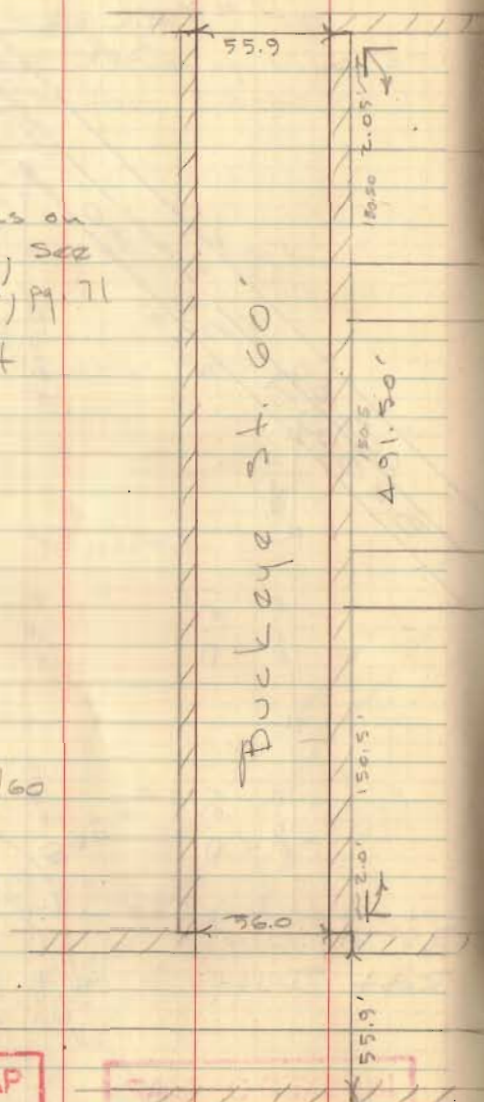 55.9
2.05'
150.50
s on
, see
, pg. 71
t
Buckeye St. 60'
150.5
491.50'
150.5'
/60
2.0'
56.0
55.9'
AP